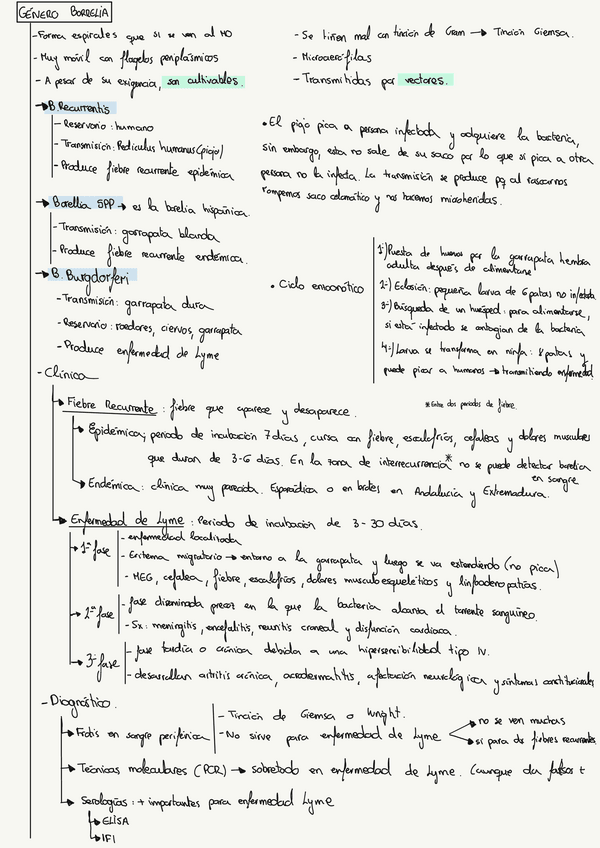 GÉNERO BORRELIA
- Forma espirales que si se ven al MO
- Muy móvil con flagelos periplásmicos
- A pesar de su exigencia, son cultivables.
- Se tiñen mal con tinción de Gram → Tinción Giemsa.
- Microaerófilas
- Transmitidas por vectores.
→ B. Recurrentis
- Reservorio: humano
- Transmisión: Pediculus humanus (piojo)
- Produce fiebre recurrente epidémica
• El piojo pica a persona infectada y adquiere la bacteria,
sin embargo, esta no sale de su saco por lo que si pica a otra
persona no la infecta. La transmisión se produce pq al rascarnos
rompemos saco celomático y nos hacemos microheridas.
→ Borellia SPP → es la borelia hispánica.
- Transmisión: garrapata blanda
- Produce fiebre recurrente endémica.
→ B. Burgdorferi
- Transmisión: garrapata dura
- Reservorio: roedores, ciervos, garrapata
- Produce enfermedad de Lyme
• Ciclo enzoonótico
1-) Puesta de huevos por la garrapata hembra
adulta después de alimentarse
2-) Eclosión: pequeña larva de 6 patas no infectada
3-) Búsqueda de un huésped: para alimentarse,
si está infectado se contagian de la bacteria
4-) Larva se transforma en ninfa: 8 patas y
puede picar a humanos → transmitiendo enfermedad
- Clínica
→ Fiebre Recurrente: fiebre que aparece y desaparece.
* Entre dos periodos de fiebre.
→ Epidémica: periodo de incubación 7 días, cursa con fiebre, escalofríos, cefaleas y dolores musculares
que duran de 3-6 días. En la zona de interrecurrencia* no se puede detectar borelia
en sangre
→ Endémica: clínica muy parecida. Esporádica o en brotes en Andalucía y Extremadura.
→ Enfermedad de Lyme: Periodo de incubación de 3-30 días.
→ 1ª fase
- enfermedad localizada
- Eritema migratorio → entorno a la garrapata y luego se va extendiendo (no pica)
- MEG, cefalea, fiebre, escalofríos, dolores musculoesqueléticos y linfadenopatías.
→ 2ª fase
- fase diseminada precoz en la que la bacteria alcanza el torrente sanguíneo.
- Sx: meningitis, encefalitis, neuritis craneal y disfunción cardíaca.
→ 3ª fase
- fase tardía o crónica debida a una hipersensibilidad tipo IV.
- desarrollan artritis crónica, acrodermatitis, afectación neurológica y síntomas constitucionales
- Diagnóstico.
→ Frotis en sangre periférica
- Tinción de Giemsa o Wright.
- No sirve para enfermedad de Lyme
→ no se ven muchas
→ si para dx fiebres recurrentes
→ Técnicas moleculares (PCR) → sobretodo en enfermedad de Lyme. (aunque da falsos +
→ Serologías: + importantes para enfermedad Lyme
→ ELISA
→ IFI